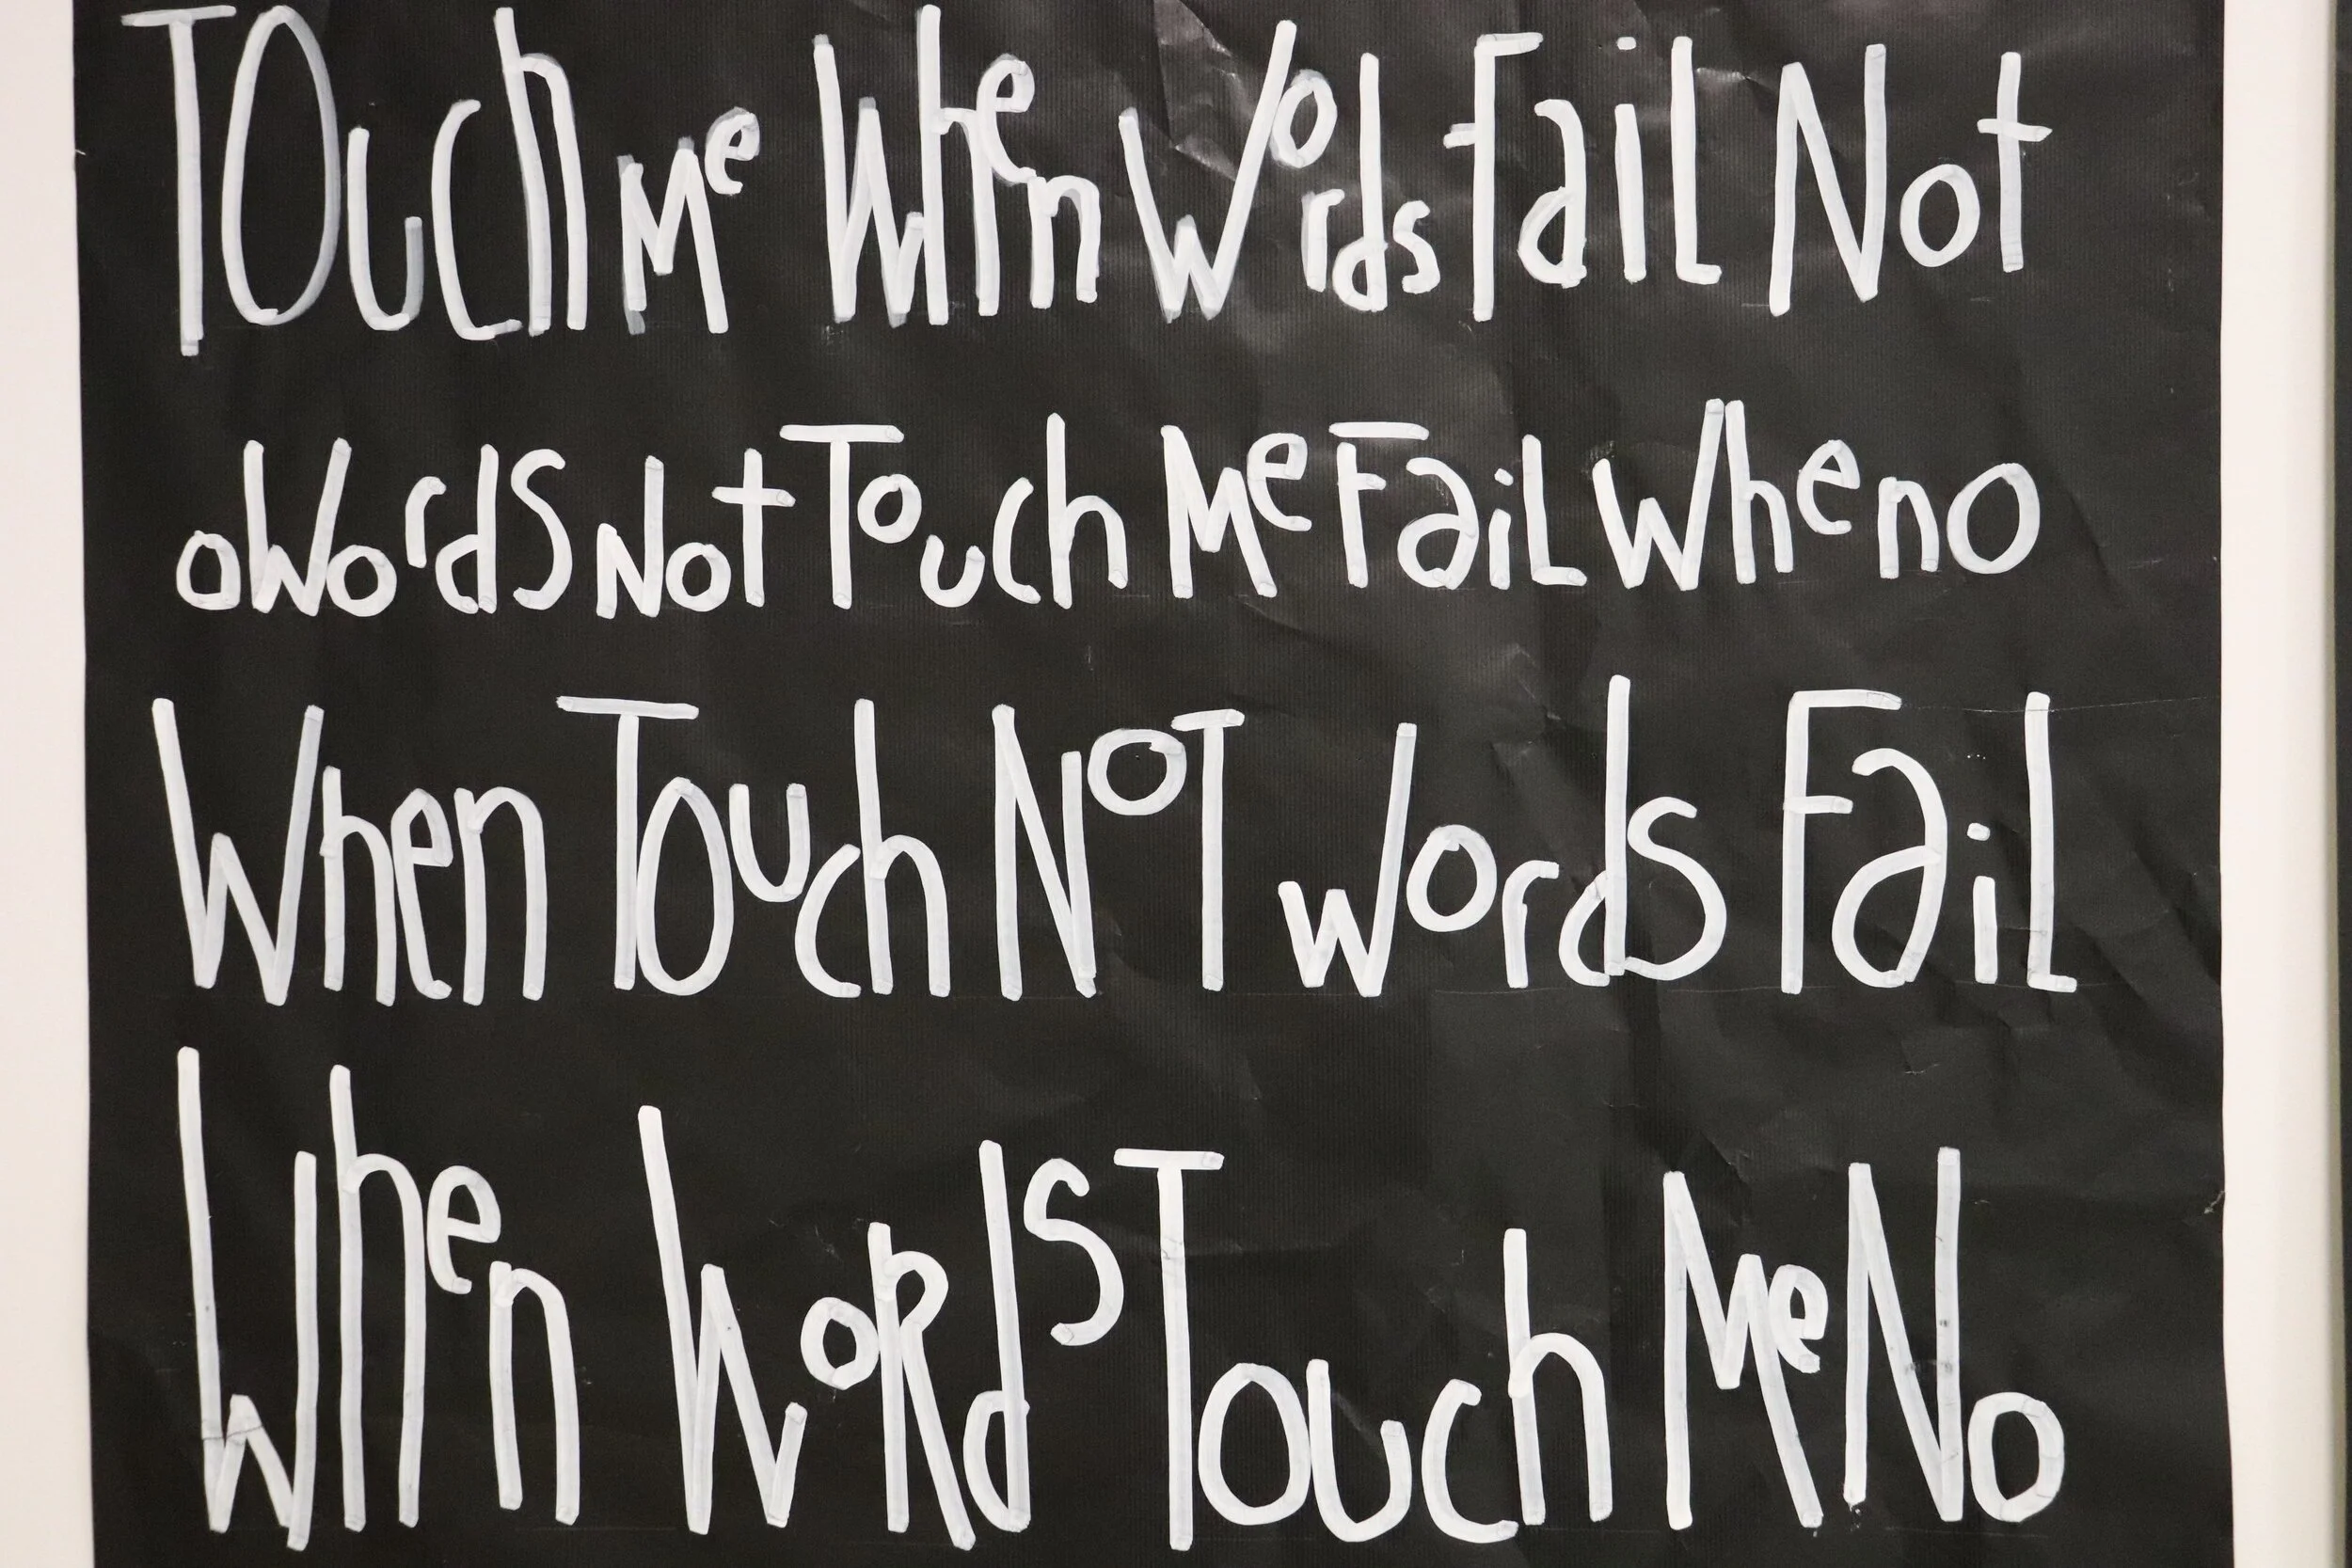 TOuch Me When Words Fail Not
oWordS Not Touch Me Fail When o
When Touch NoT words Fail
When WoRds Touch Me No